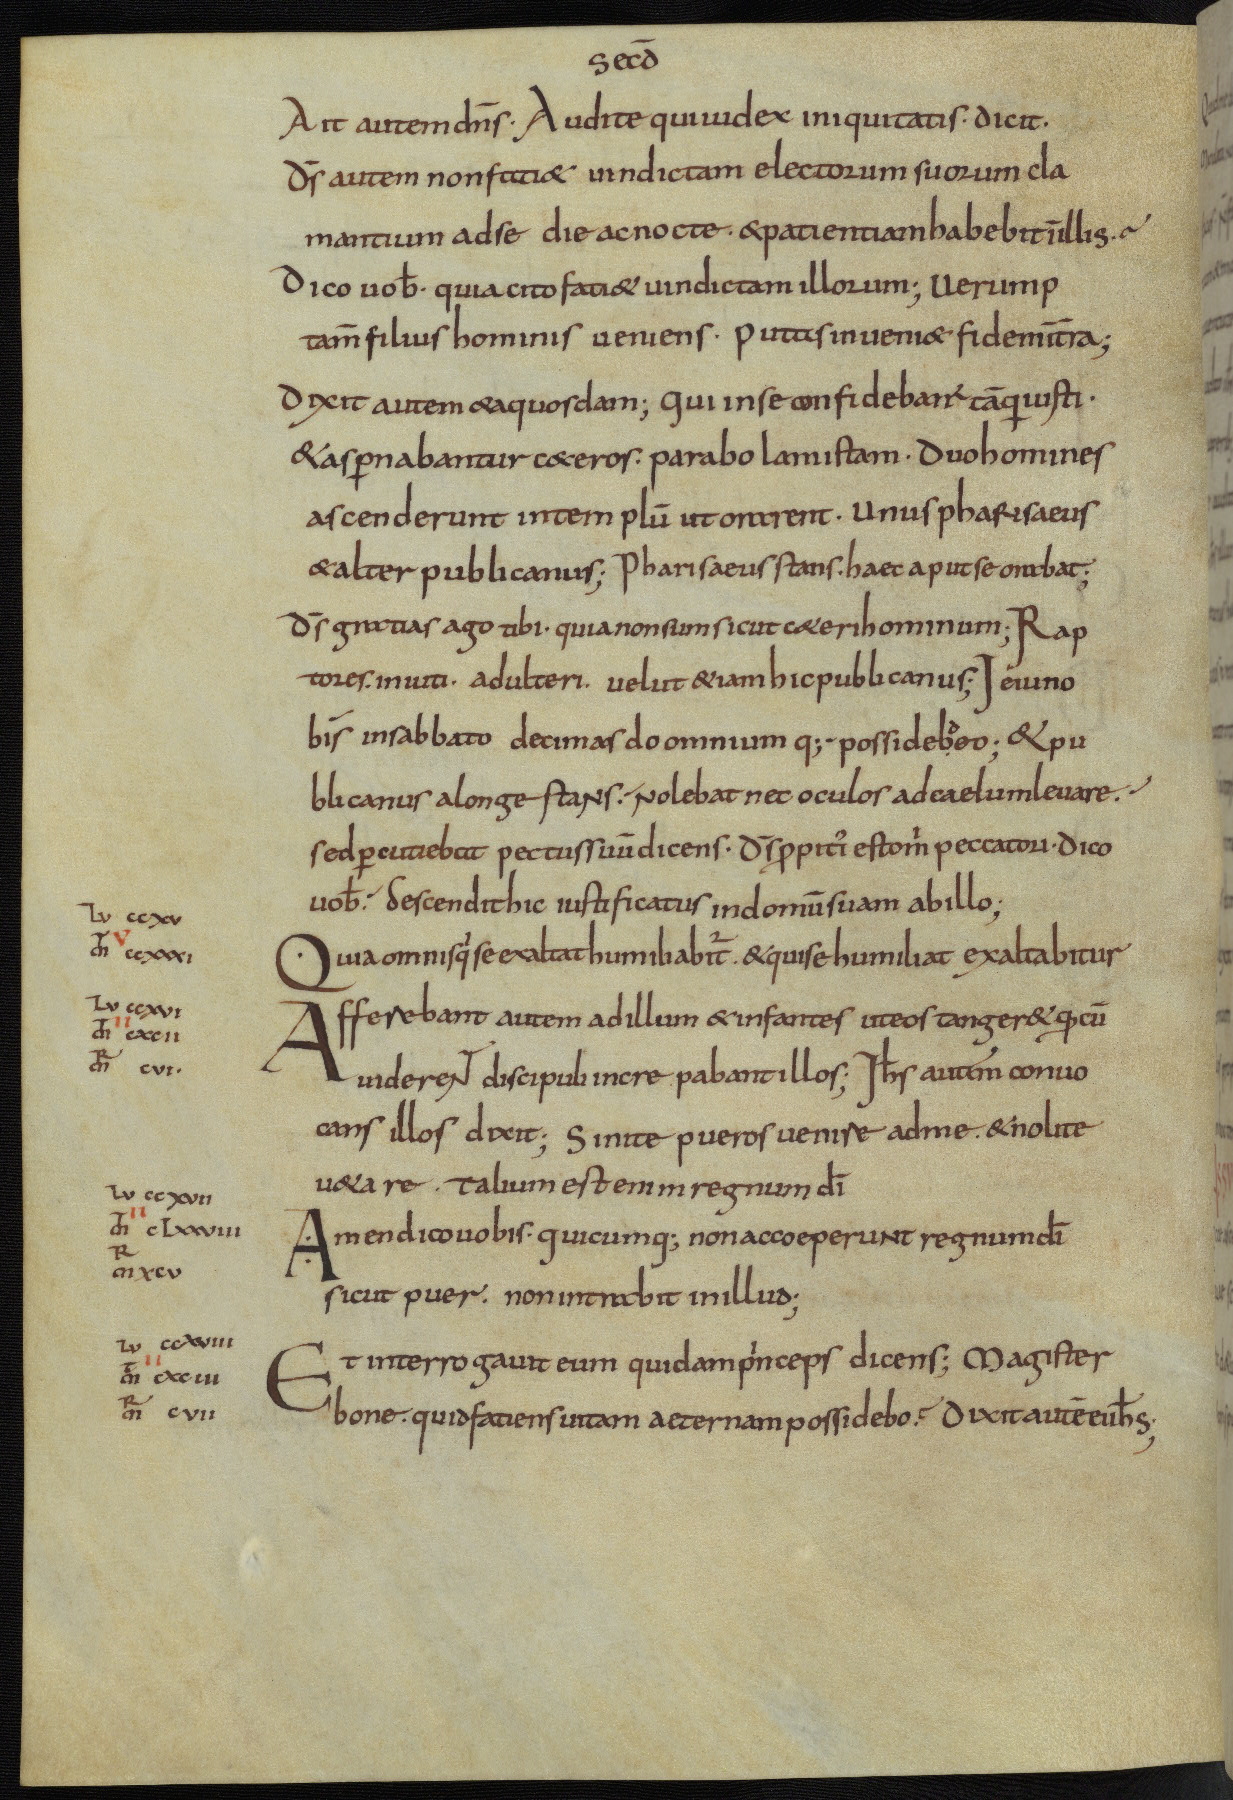 Secd̄
Ait autem dn̄s· Audite qui iudex iniquitatis· dicit·
D̄s autem non fati& uindictam electorum suorum cla
mantium ad se die ac nocte· & patientiam habebit in̄ illis·
Dico uob̄· quia cito fati& uindictam illorum; Uerump
tam̄ filius hominis ueniens· Putas inueni& fidem in̄ t̄ra;
Dixit autem & a quosdam; Qui in se confidebant tāq̄ iusti·
& asp̄nabantur c&eros· parabolam istam· Duo homines
ascenderunt in templū ut orarent· Unus pharisaeus
& alter publicanus; Pharisaeus stans· haec aput se orabat;
D̄s gratias ago tibi· quia non sum sicut c&eri hominum; Rap
tores· iniusti· adulteri· uelut &iam hic publicanus; Ieiuno
bis in sabbato decimas do omnium q;· possideo; & pu
blicanus a longe stans· nolebat nec oculos ad caelum leuare·
sed p̄cutiebat pectus suū dicens· D̄s p̄pitius esto m̄ peccatori· Dico
uob̄· descendit hic iustificatus in domū suam ab illo;
lu ccxv
m̄ v ccxxxi
Quia omnis q̄ se exaltat humiliabit̄· & qui se humiliat exaltabitur
lu ccxvi
m̄ ii cxcii
mR cvi·
Afferebant autem ad illum & infantes ut eos tanger& q̄ cū
uiderent discipuli increpabant illos; Ih̄s autem conuo
cans illos dixit; Sinite pueros uenire ad me· & nolite
u&are· talium est enim regnum dī
lu ccxvii
m̄ ii clxxviii
mR xcv
Amen dico uobis· quicumq; non accoeperunt regnum dī
sicut puer· non intrabit in illud;
lu ccxviii
m̄ ii cxciii
mR cvii
Et interrogauit eum quidam princeps dicens; Magister
bone· quid fatiens uitam aeternam possidebo· Dixit autē ei ih̄s;